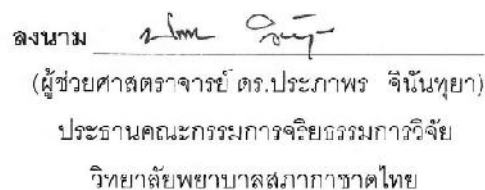 ลงนาม
(ผู้ช่วยศาสตราจารย์ ดร.ประภาพร จินันทุยา)
ประธานคณะกรรมการจริยธรรมการวิจัย
วิทยาลัยพยาบาลสภากาชาดไทย